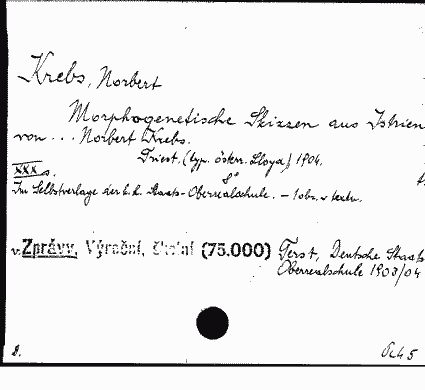 Krebs, Norbert
Morphogenetische Skizzen aus Istrien
von ... Norbert Krebs.
Triest. (typ. österr. Lloyd) 1904.
XXX s. 8°
Im Selbstverlage der k.k. Staats-Oberrealschule. – 1 obr. v textu.
v. Zprávy, Výroční, školní (75.000) Terst, Deutsche Staats
Oberrealschule 1903/04
8.